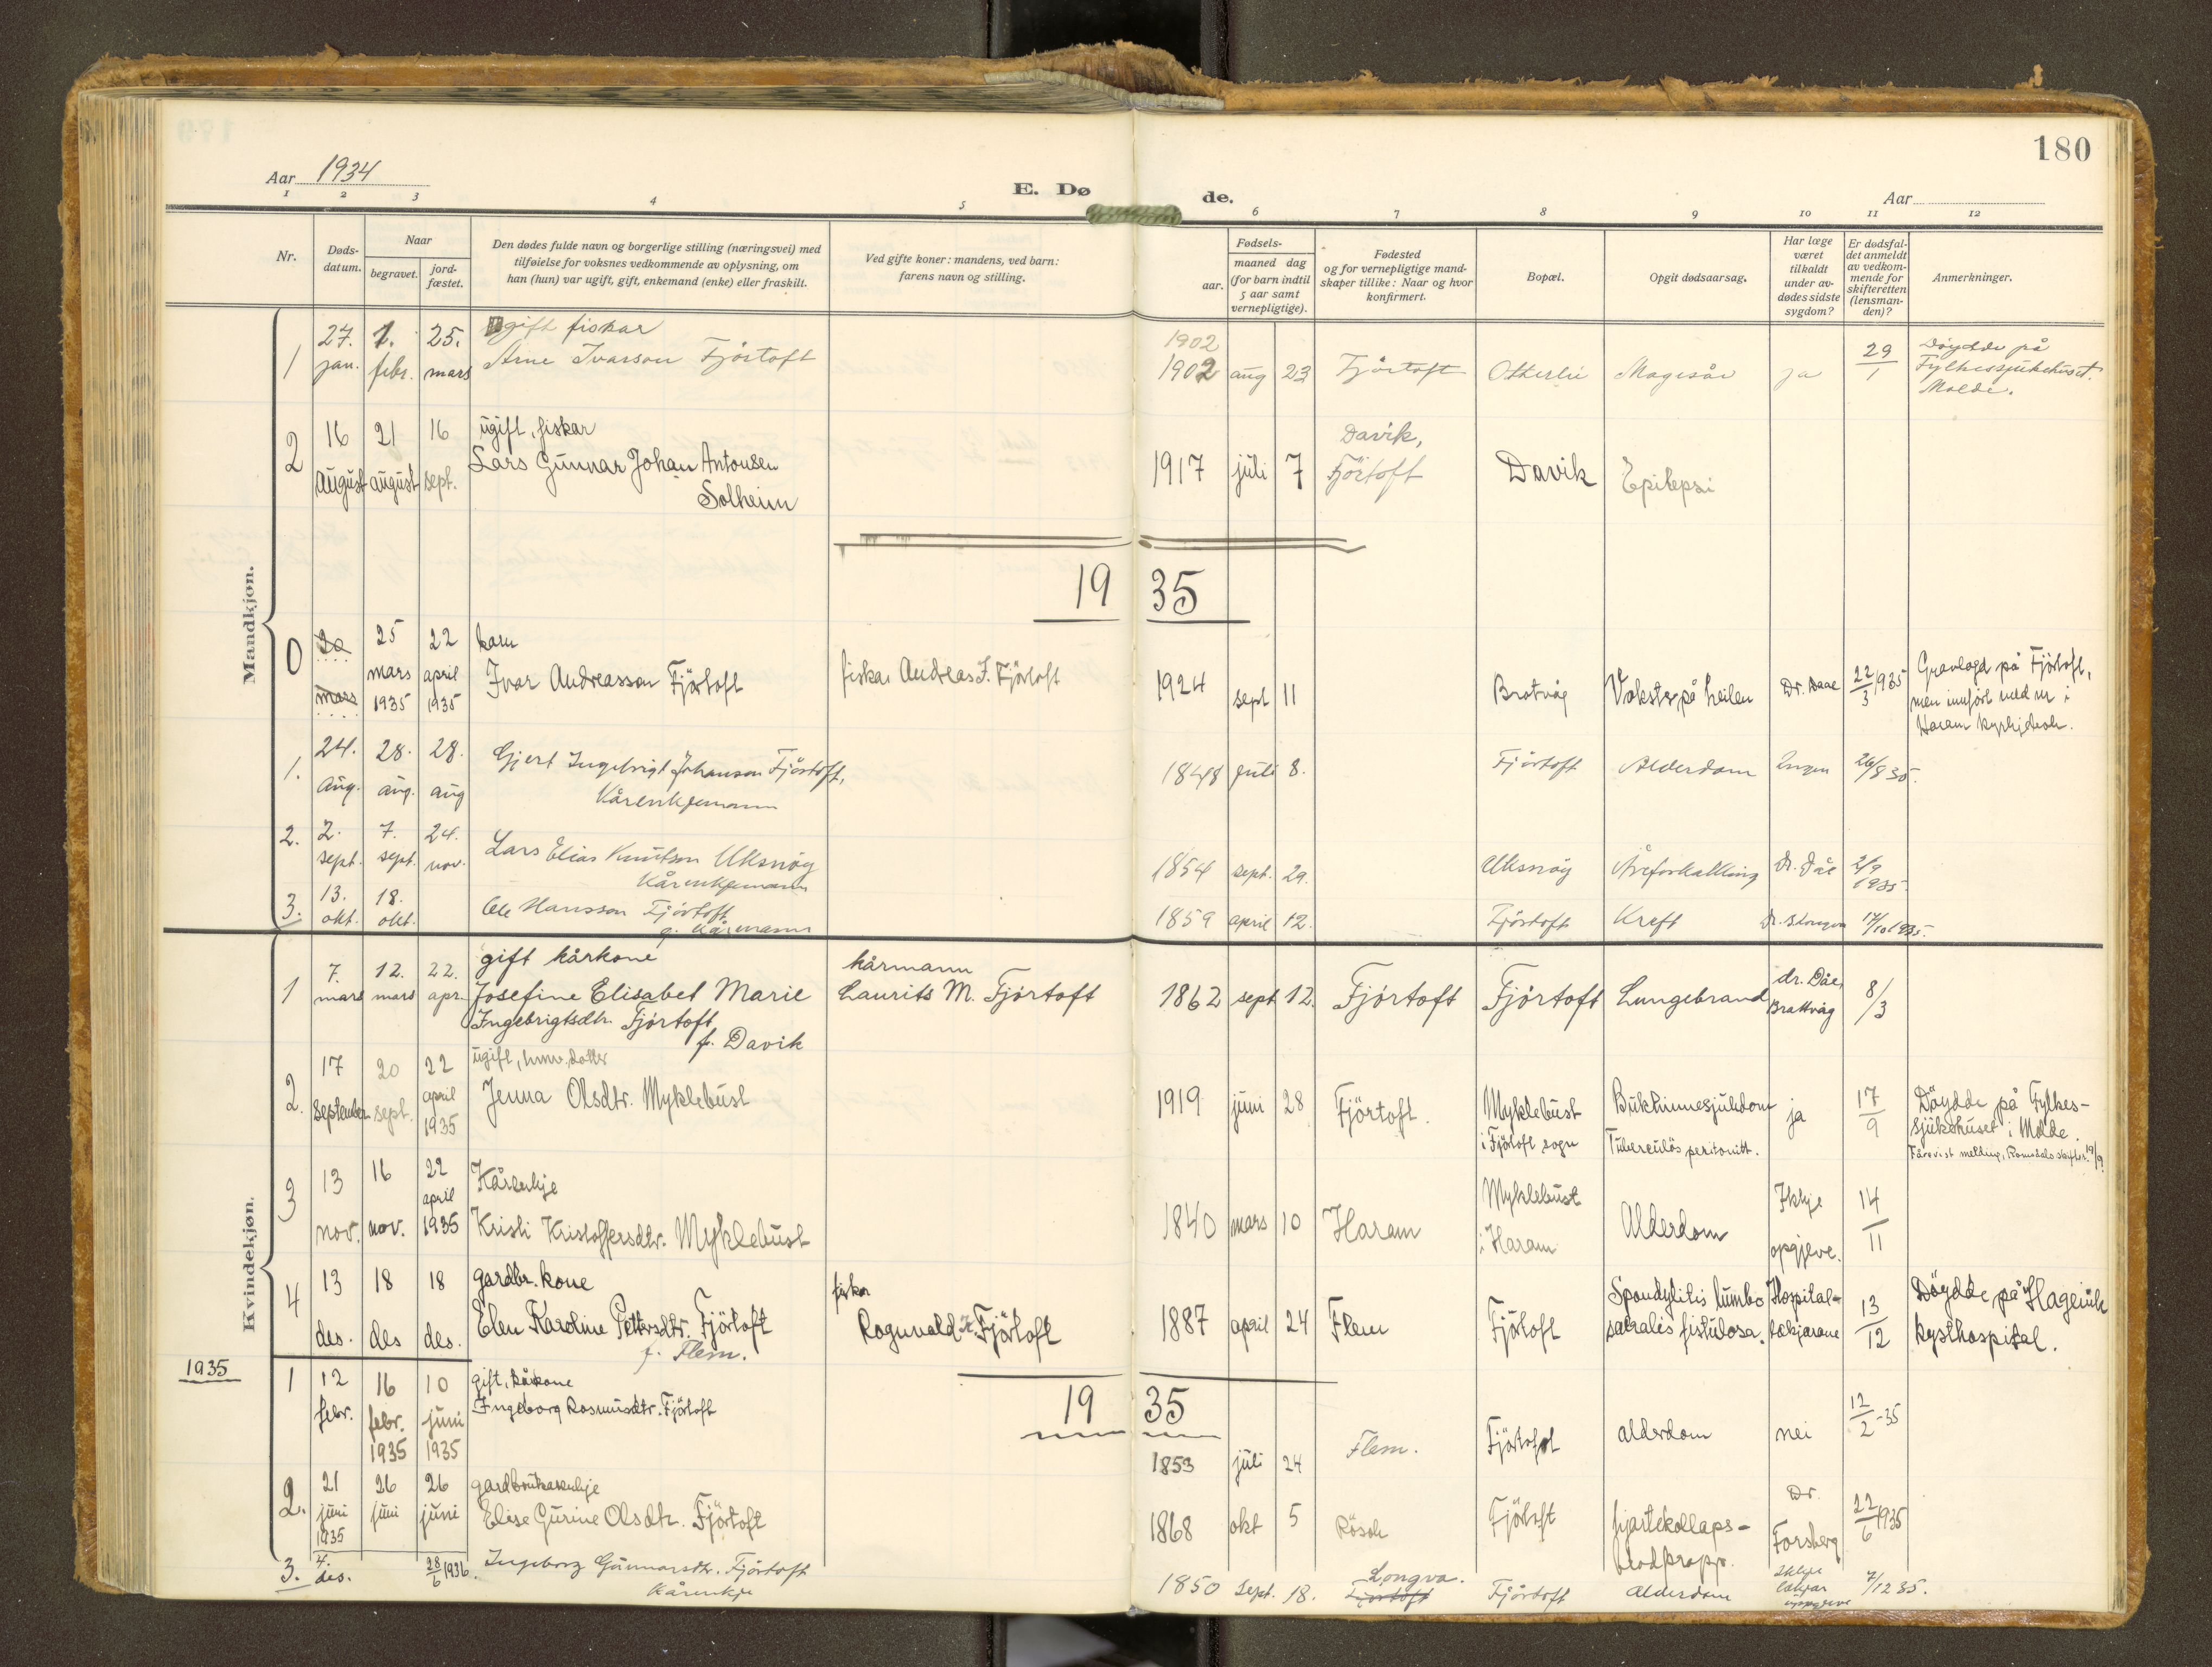 180
Aar 1934
E. Døde.
Aar
1 2 3 4 5 6 7 8 9 10 11 12
Nr.
Døds-
datum.
Naar
begravet.
jord-
fæstet.
Den dødes fulde navn og borgerlige stilling (næringsvei) med
tilføielse for voksnes vedkommende av oplysning, om
han (hun) var ugift, gift, enkemand (enke) eller fraskilt.
Ved gifte koner: mandens, ved barn:
farens navn og stilling.
Fødsels-
aar.
maaned dag
(for barn indtil
5 aar samt
vernepligtige).
Fødested
og for vernepligtige mand-
skaper tillike: Naar og hvor
konfirmert.
Bopæl.
Opgit dødsaarsag.
Har læge
været
tilkaldt
under av-
dødes sidste
sygdom?
Er dødsfal-
det anmeldt
av vedkom-
mende for
skifteretten
(lensman-
den)?
Anmerkninger.
Mandkjøn.
1
27. jan.
1. febr.
25. mars
ugift fiskar
Arne Ivarson Fjörtoft
1902
1902 aug 23
Fjörtoft
Otterlei
Magesår
ja
29/1
Döydde på
Fylkessjukehuset.
Molde.
2
16 august
21 august
16 sept.
ugift, fiskar
Lars Gunnar Johan Antonsen
Solheim
1917 juli 7
Davik,
Fjörtoft
Davik
Epilepsi
1935
0
20 mars
25 mars 1935
22 april 1935
barn
Ivar Andreasson Fjörtoft
fiskar Andreas I. Fjörtoft
1924 sept 11
Bratvåg
Vokster på heilen
Dr. Daae
22/3 1935
Gravlagd på Fjörtoft,
men innfört med nr i
Haram kyrkjebok.
1.
24. aug.
28. aug.
28. aug
Gjert Ingebrigt Johanson Fjörtoft,
Kårenkjemann
1848 juli 8.
Fjörtoft
Alderdom
Ingen
26/8 35.
2.
2. sept.
7. sept.
24. nov.
Lars Elias Knutson Uksnöy
Kårenkjemann
1854 sept. 29.
Uksnöy
Åreforkalking
Dr. Dåe
2/9 1935.
3.
13. okt.
18. okt.
Ole Hansson Fjörtoft
g. Kårmann
1859 april 12.
Fjörtoft
Kreft
17/10 1935.
Kvindekjøn.
1
7. mars
12. mars
22. apr.
gift kårkone
Josefine Elisabet Marie
Ingebrigtsdtr. Fjörtoft
f. Davik
kårmann
Laurits M. Fjörtoft
1862 sept 12.
Fjörtoft
Fjörtoft
Lungebrand
dr. Dåe,
Brattvåg
8/3
2.
17 september
20 sept.
22 april 1935
ugift, hmv. dotter
Jenna Olsdtr. Myklebust
1919 juni 28
Fjörtoft.
Myklebust
i Fjörtoft sogn
Bukhinnesjukdom
Tuberculös peritonitt.
ja
17/9
Döydde på Fylkes-
sjukehuset i Molde.
3
13 nov.
16 nov.
22 april 1935
Kårenkje
Kristi Kristoffersdtr. Myklebust
1840 mars 10
Haram
Myklebust
i Haram
Alderdom
Ikkje
opgjeve.
14/11
4
13 des.
18 des
18 des.
gardbr. kone
Elen Karoline Pettersdtr. Fjörtoft
f. Flem.
fiskar
Rognvald K. Fjörtoft
1887 april 24
Flem
Fjörtoft
Spondylitis lumbo
sacralis fistulosa.
Hospital-
lækjarane
13/12
Döydde på Hagevik
kysthospital.
1935
1935
1
12 febr.
16 febr. 1935
10 juni 1935
gift, kårkone
Ingeborg Rasmusdtr. Fjörtoft
1853 juli 24
Flem.
Fjörtoft
alderdom
nei
12/2 -35
2.
21 juni 1935
26 juni
26 juni
gardbrukarenkje
Elise Gurine Olsdtr. Fjörtoft
1868 okt 5
Rösok
Fjörtoft
hjartekollaps-
blodpropp.
Dr.
Forsberg
22/6 1935
3.
4. des.
28/6 1936.
Ingeborg Gunnarsdtr. Fjörtoft
Kårenkje
1850 sept. 18.
Longva.
Fjörtoft
Fjörtoft
Alderdom
Ikkje
lækjar
uppgjeve
7/12 35.